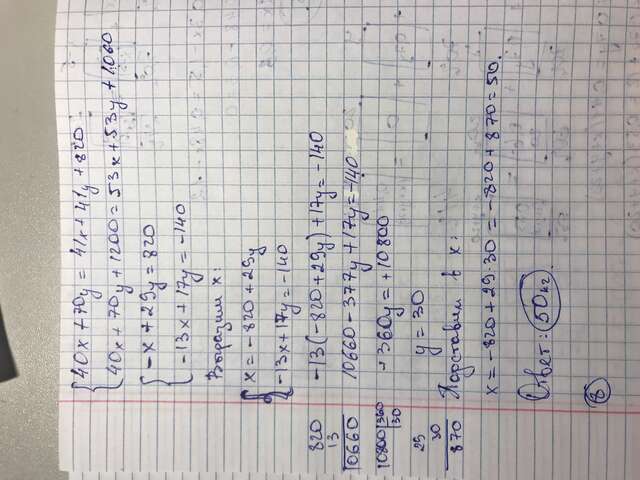 40x + 70y = 41x + 41y + 820
40x + 70y + 1200 = 53x + 53y + 1060
-x + 29y = 820
-13x + 17y = -140
Выразим x:
x = -820 + 29y
-13x + 17y = -140
820
13
10660
-13(-820 + 29y) + 17y = -140
10660 - 377y + 17y = -140
10800 | 360
30
-360y = +10800
29
30
870
y = 30
Подставим в x:
x = -820 + 29·30 = -820 + 870 = 50.
Ответ: 50 кг.
8